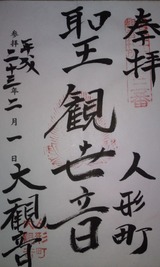 奉拝
人形町
聖王観世音
大観音
参拝 平成二十三年二月一日